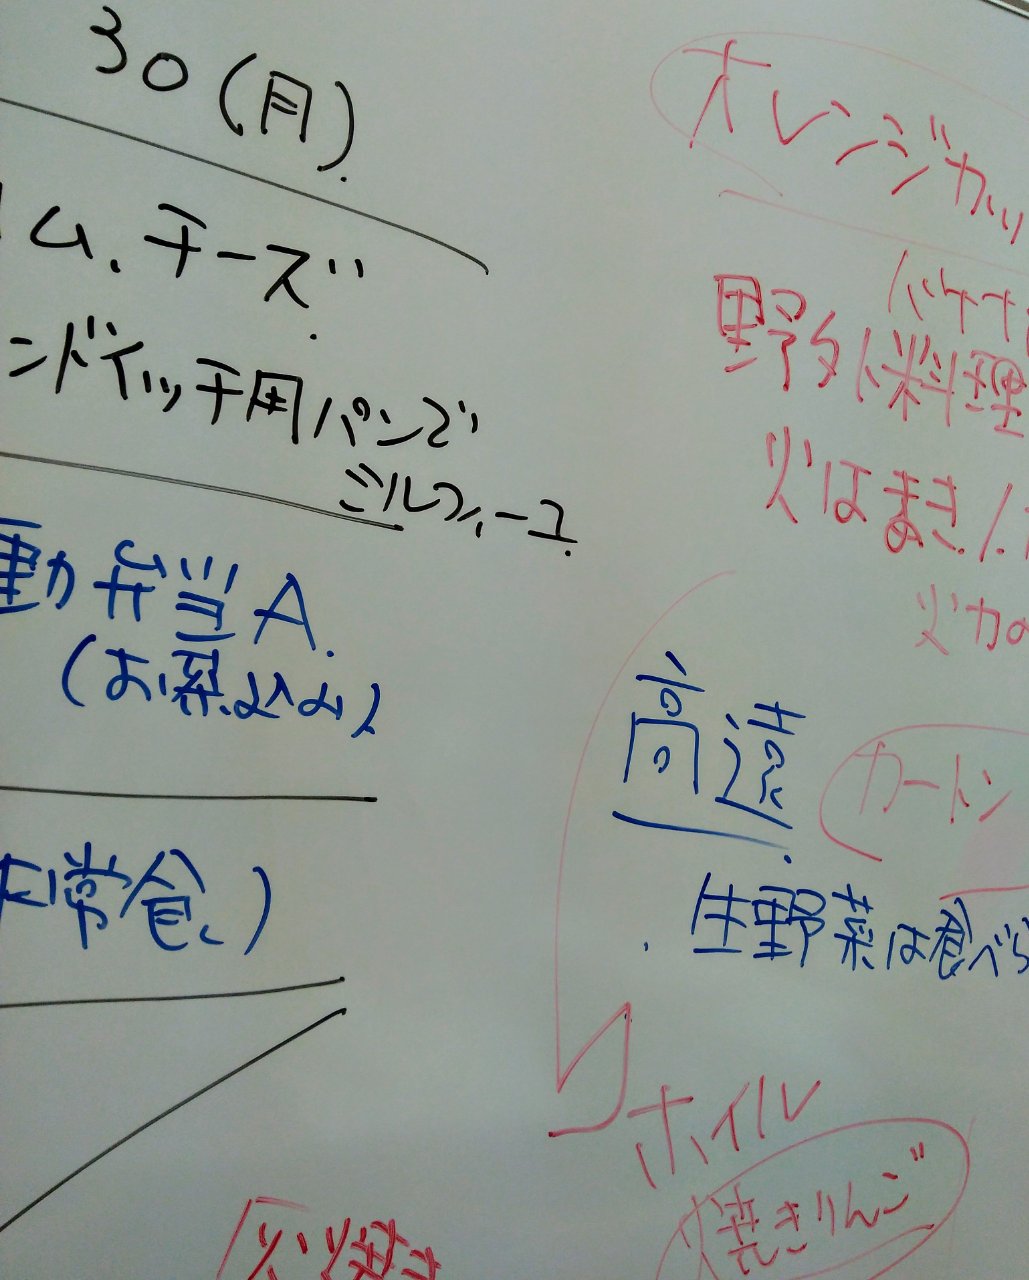 30(月).
ム、チーズ
ンドイッチ用パンで
ミルフィーユ
動弁当A.
(お茶込み)
非常食)
オレンジカッ
バナナ
野外料理
火はまき
火力の
高遠
カートン
・生野菜は食べら
ホイル
焼きりんご
焼き